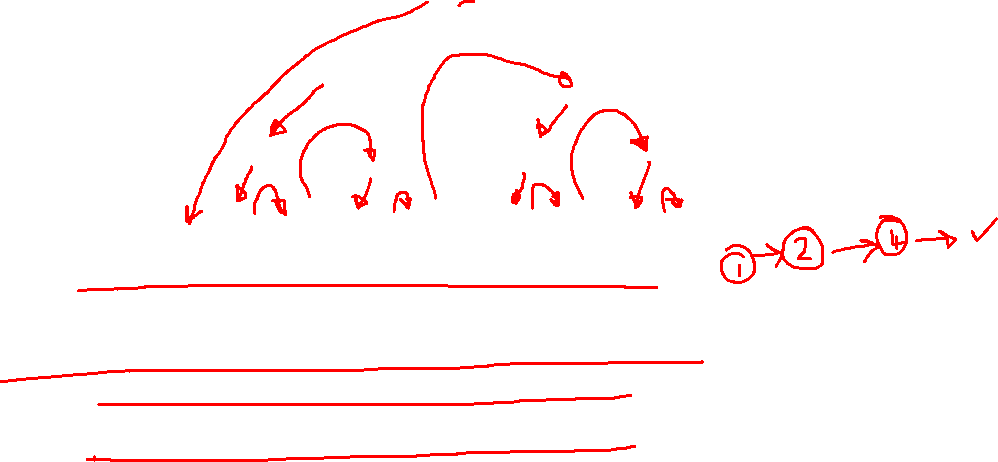 1 → 2 → 4 → ✓